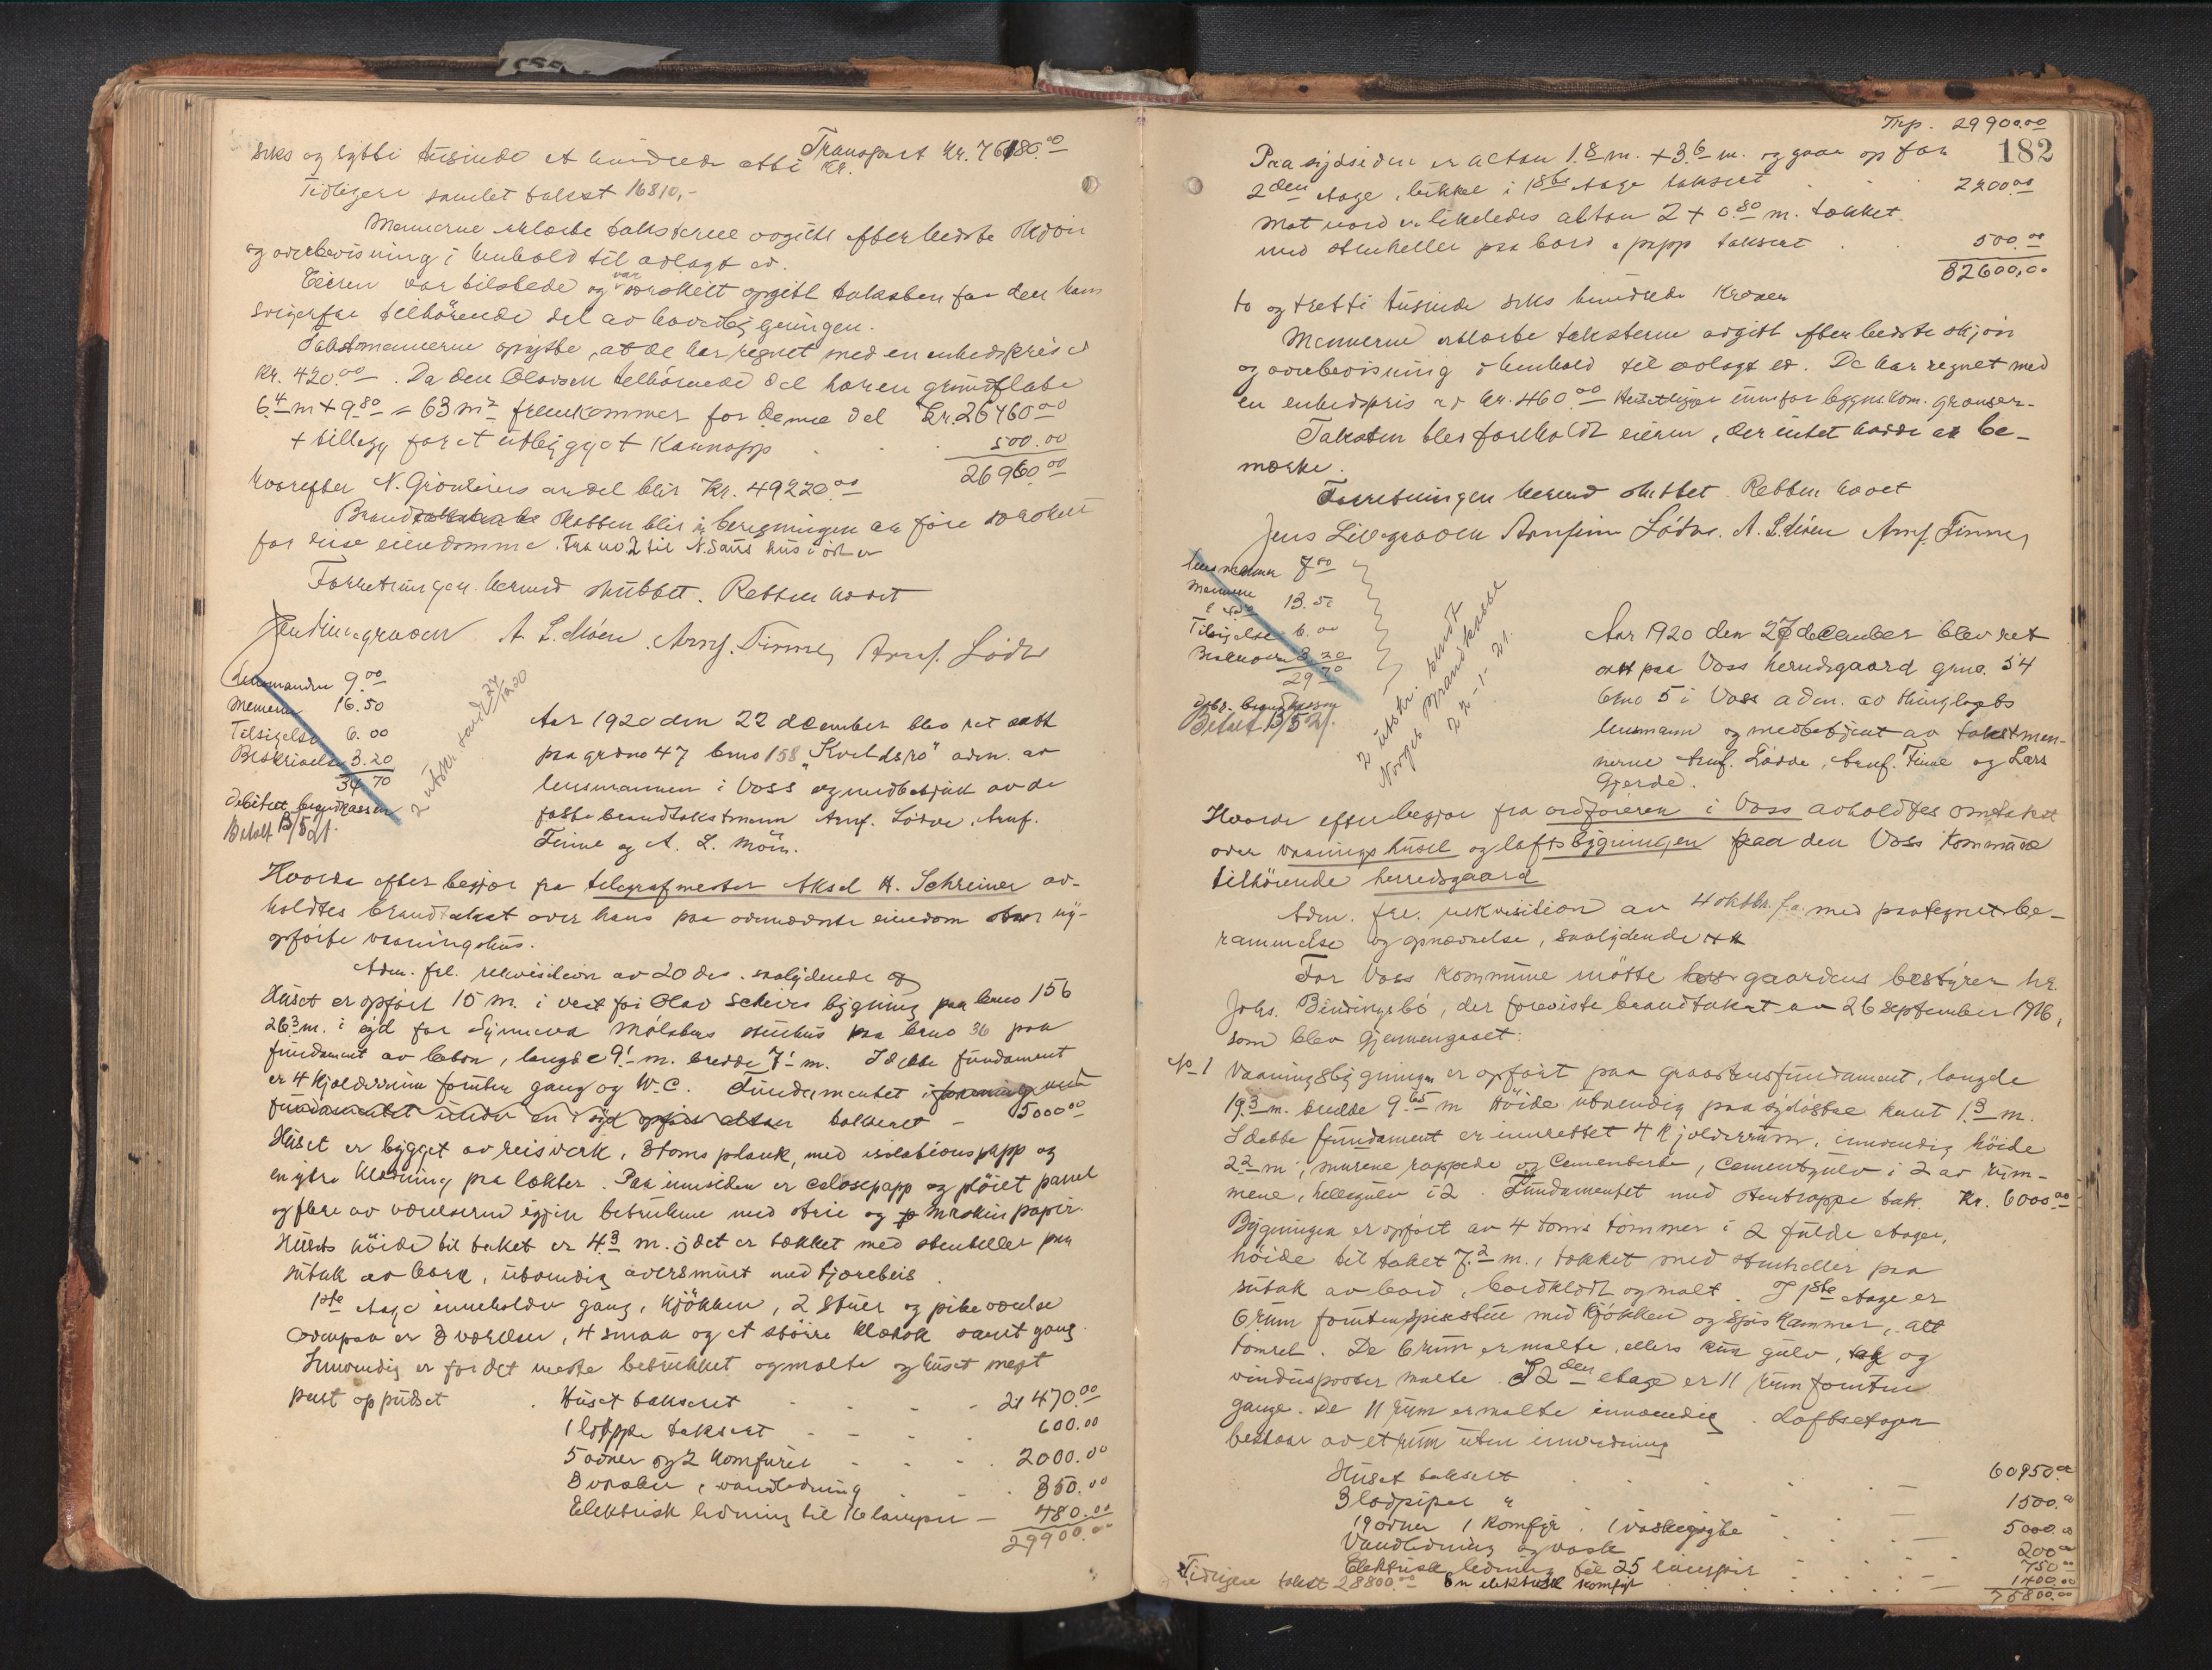 Transport Kr. 76180.00
seks og sytti tusinde et hundrede otti Kr.
Tidligere samlet takst 16810,-
Mennerne erklærte taksterne avgit efter bedste skjøn
og overbevisning i henhold til avlagt ed.
Eieren var tilstede og var særskilt opgitt taksten for den hans
svigerfar tilhörende del av hovedbygningen.
Takstmennerne oplyste, at de har regnet med en enhedspris
Kr. 420.00. Da den Olavsen tilhörende del har en grundflate
6.4 m + 9.80 = 63 m2 fremkommer for denne del Kr. 26460.00
+ tillegg for et utbygget Kannapp . . 500.00
26960.00
hvorefter N. Grönlien andel blir Kr. 49220.00
Skatten blir i beregningen at före særskilt
for disse eiendomme. Fra no 2 til N. hus i öst er
Forretningen hermed sluttet. Retten hævet
A. L. Möen. Arnf. Finne, Arnf. Lödve
Lensmanden 9.00
Mennene 16.50
Tilsigelse 6.00
Beskrivelse 3.20
34 70
Debitert brandkassen
Betalt 13/5 21.
2 utskr. sendt 27/12 20
Aar 1920 den 22 december blev ret satt
paa grdno 47 bno 158 "Kveldsro" adm. av
lensmannen i Voss og medbetjent av de
faste brandtakstmenn Arnf. Lödve, Arnf.
Finne og A. L. Möen.
Hvorda efter begjær fra telegrafmester Aksel H. Schreiner av-
holdtes brandtakst over hans paa ovennævnte eiendom staar ny-
opförte vaaningshus.
Adm. frl. rekvisition av 20 ds. saalydende
Huset er opfört 15 m. i vest for Olav bygning paa bno 156
26.3 m. i syd for Synneva Mölsters stenhus paa bno 36 paa
fundament av beton, længde 9.1 m. bredde 7.1 m. I dette fundament
er 4 kjelderrum foruten gang og W.C. Fundamentet
takseret - 5000.00
Huset er bygget av reisverk, 3toms plank, med isolationspapp og
en ytre klædning paa lekter. Paa innsiden er celosepapp og plöiet panel
og flere av værelserne igjen betrukne med strie og maskinpapir.
Husets höide til taket er 4.3 m. det er tækket med stenheller paa
sutak av bord, utvendig oversmurt med tjærebeis.
1ste etage inneholder gang, kjökken, 2 stuer og pikeværelse
Ovenpaa er 3 værelser, 4 smaa og et större klækot samt gang.
Innvendig er for det meste betrukket og malte og huset meget
pent oppudset . Huset takseret - - - - 21 470.00
1 löppe taksert - - - - 600.00
5 ovner og 2 komfurer . . . . 2000.00
3 vasker, vandledning . . . 350.00
Elektrisk ledning til 16 lamper - 480.00
29900.00
Trp. 29900.00
182
Paa sydsiden er altan 1.8 m. + 3.6 m. og gaar op for
2den etage, lukket i 1ste etage taksert . . . 2200.00
Mot nord er likeledes altan 2 + 0.80 m. tækket.
med stenheller paa bord & papp taksert . . 500.00
32600.00
to og tretti tusinde seks hundrede Kroner
Mennerne erklærte taksterne avgitt efter bedste skjön
og overbevisning i henhold til avlagt ed. De har regnet med
en enhedspris av kr. 460.00 Huset ligger innenfor bygns.kom. grænser.
Taksten blev foreholdt eieren, der intet hadde at be-
mærke.
Forretningen hermed sluttet. Retten hævet
Jens Lillegraven Arnfinn Lödve. A. L. Möen Arnf. Finne,
Lensmannen 7.00
Mennene 13.50
Tilsigelse 6.00
Beskrivelse 3.20
29 70
Debt. brandkassen
Betalt 13/5 21.
2 utskr. sendt
Norges Brandkasse
22-1-21.
Aar 1920 den 27 december blev ret
satt paa Voss herredsgaard gno. 54
bno 5 i Voss adm. av thinglagets
lensmann og medbetjent av takstmen-
nerne Arnf. Lödve, Arnf. Finne og Lars
Gjerde.
Hvorda efter begjær fra ordföreren i Voss avholdtes omtakst
over vaaningshuset og loftsbygningen paa den Voss Kommune
tilhörende herredsgaard
Adm. frl. rekvisition av 4 oktbr. f.a. med paategnet be-
rammelse og opnævnelse, saalydende
For Voss Kommune mötte gaardens bestyrer hr.
Johs. Bidingsbö, der foreviste brandtakst av 26 september 1916,
som blev gjennemgaaet:
No 1 Vaaningsbygningen er opfört paa graastensfundament, længde
19.3 m. bredde 9.65 m Höide utvendig paa sydöstre kant 1.3 m.
I dette fundament er innrettet 4 kjelderrum, innvendig höide
2.2 m, murene rappede og Cementerte, Cementgulv i 2 av rum-
mene, hellegulv i 2. Fundamentet med stentrappe tak. Kr. 6000.00
Bygningen er opfört av 4 toms tömmer i 2 fulde etager,
höide til taket 7.2 m., tækket med stenheller paa
sutak av bord, bordklædt og malt. I 1ste etage er
6 rum foruten spisestue med kjökken og spiskammer, alt
tömret. De 6 rum er malte, ellers kun gulv, tak og
vindusposter malte. I 2den etage er 11 rum foruten
gange. De 11 rum er malte innvendig. Loftsetagen
bestaar av et rum uten innredning
Huset taksert . . . . - 60950.00
3 lodpiper " . . . . 1500.00
19 ovner 1 Komfyr. 1 vaskegryte . . . - 5000.00
Vandledning og vask . . . 200.00
Elektrisk ledning til 25 lamper - . . . - 750.00
Tidligere takst 28800.00 En elektrisk komfyr . . . . 1400.00
75800.00